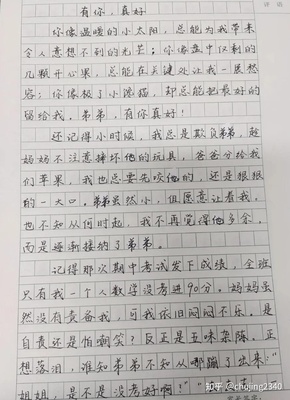 有你,真好
你像温暖的小太阳,总能为我带来
令人意想不到的光芒;你像盘中仅剩的
几颗开心果,总能在关键处让我一展愁
容;你像极了小馋猫,却总能把最好的
留给我。弟弟,有你真好!
还记得小时候,我总是欺负弟弟,趁
妈妈不注意摔坏他的玩具,爸爸分给我
们苹果,我也总要先咬他的,还是狠狠
的一大口。弟弟虽然小,但愿意让着我。
也不知从何时起,我不再觉得他多余,
而是逐渐接纳了弟弟。
记得那次期中考试发下成绩,全班
只有我一个人数学没考进90分。妈妈虽
然没有责备我,可我依旧闷闷不乐。是
自责还是怕嘲笑?反正是五味杂陈。正
想落泪,谁知弟弟不知从哪蹦了出来:“
姐姐,是不是没考好啊!”
知乎 @chojing2340